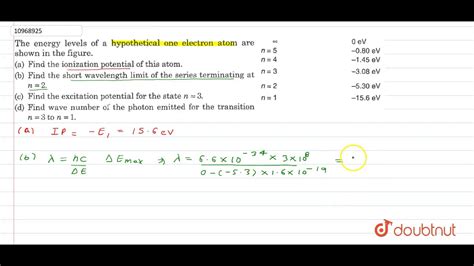 10968925
The energy levels of a hypothetical one electron atom are
shown in the figure.
(a) Find the ionization potential of this atom.
(b) Find the short wavelength limit of the series terminating at
n = 2
(c) Find the excitation potential for the state n = 3.
(d) Find wave number of the photon emitted for the transition
n = 3 to n = 1.
∞ 0 eV
n = 5 –0.80 eV
n = 4 –1.45 eV
n = 3 –3.08 eV
n = 2 –5.30 eV
n = 1 –15.6 eV
(a) IP = -E₁ = 15.6 eV
(b) λ = hc/ΔE ΔEmax ⇒ λ = 6.6×10⁻³⁴ × 3×10⁸ / 0-(-5.3) × 1.6×10⁻¹⁹ =
doubtnut